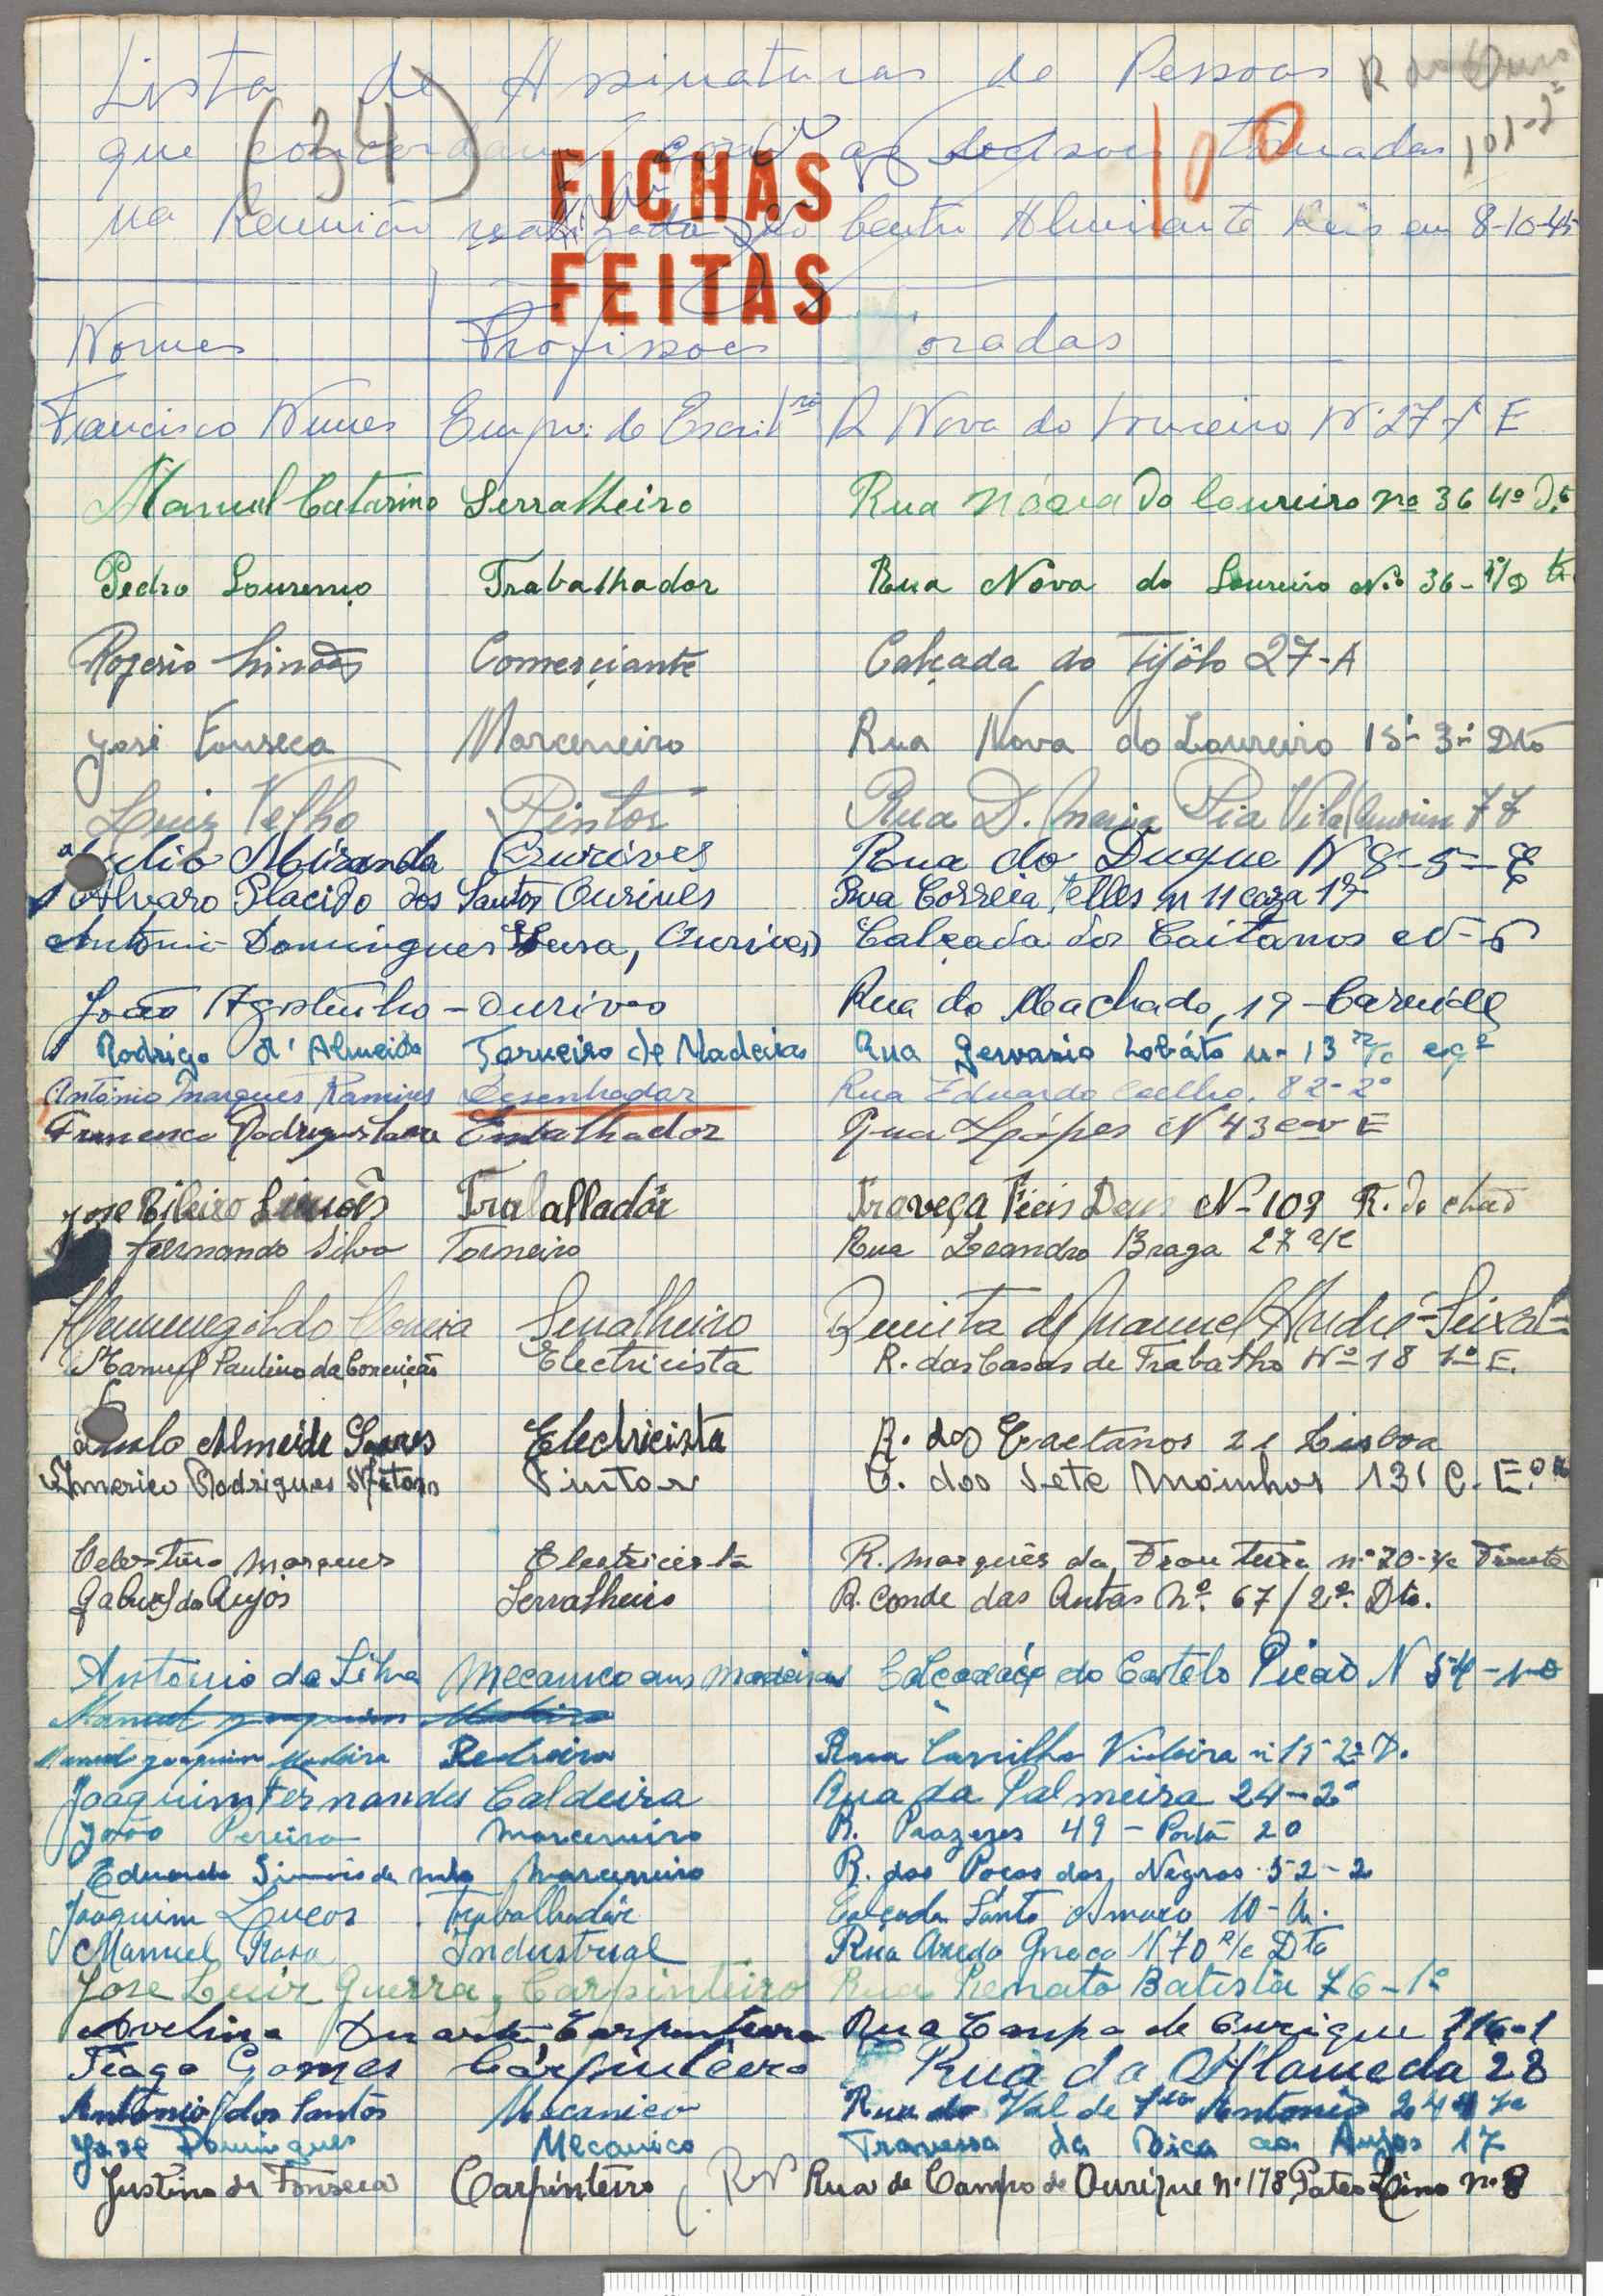 Lista de Assinaturas de Pessoas R do Ouro
(34) 100 101-2º
que concordam com as decisões tomadas
na Reunião realizada no Centro Almirante Reis em 8-10-45
FICHAS
FEITAS
Nomes Profissoes oradas
Francisco Nunes Empr. de Escrit R Nova do Loureiro Nº 27 E
Manuel Catarino Serralheiro Rua Nóova Do loureiro nº 36 4º D.to
Pedro Lourenço Trabalhador Rua Nova do Loureiro Nº 36
Rogerio Simões Comerçiante Calçada do Tijôlo 27-A
José Fonseca Marceneiro Rua Nova do Loureiro 15- 3º Dto
Luiz Velho Pintor Rua D. Maria Pia Vila 77
Julio Miranda Ourives Rua do Duque Nº 8-5-E
Alvaro Placido dos Santos Ourives Rua Correia Telles n 11 caza 17
Antonio Domingues Sousa, Ourives Calçada dos Caitanos
João Agostinho - Ourives Rua do Machado, 19 - Carnide
Rodrigo d'Almeida Torneiro de Madeiras Rua Gervasio Lobáto nº 13 r/c esqº
António Marques Ramires Desenhador Rua Eduardo Coelho, 82-2º
Rodrigues Rua Lopes Nº 43 E
José Ribeiro Simões Traballador Traveça Fieis Deus Nº 109 R. do chão
Fernando Silva Torneiro Rua Leandro Braga 27 r/c
Hermenegildo Moreira Serralheiro Quinta de Manuel André-Seixal-
Manuel Paulino da Conceição Electricista R. das Casas de Trabalho Nº 18 1º E.
Almeida Soares Electricista R. dos Caetanos 21 Lisboa
Americo Rodrigues Pintor C. dos Sete Moinhos 131 C. E.
Celestino Marques Electricista R. Marquês da Fronteira nº 70 r/c Frente
Gabriel dos Anjos Serralheiro R. Conde das Antas Nº. 67/2º. Dto.
António da Silva Mecanico em madeiras do Castelo Picão N 54-1º
Manuel Joaquim Madeira
Manuel Joaquim Madeira Pedreiro Rua Carrilho Videira nº 15 2º D.
Joaquim Fernandes Caldeira Rua da Palmeira 24-2º
João Pereira Marceneiro R. Prazeres 49 - Porta 20
Eduardo Simões da Marceneiro R. dos Poços dos Negros 52-2
Joaquim Lucas Trabalhadôr Calçada Santo Amaro 10-
Manuel Rosa Industrial Rua Azedo Gneco Nº 70 R/c Dto
José Luiz Guerra, Carpinteiro Rua Renato Batista 76-1º
Avelino Duarte Carpinteiro Rua Campo de Ourique 116-1
Tiago Gomes Carpinteiro Rua da Alameda 28
António dos Santos Mecanico Rua do Val de Sto Antonio
José Domingues Mecanico Travessa da Bica aos Anjos 17
Justino da Fonseca Carpinteiro Rua de Campo de Ourique nº 178 Pateo Lino nº 8